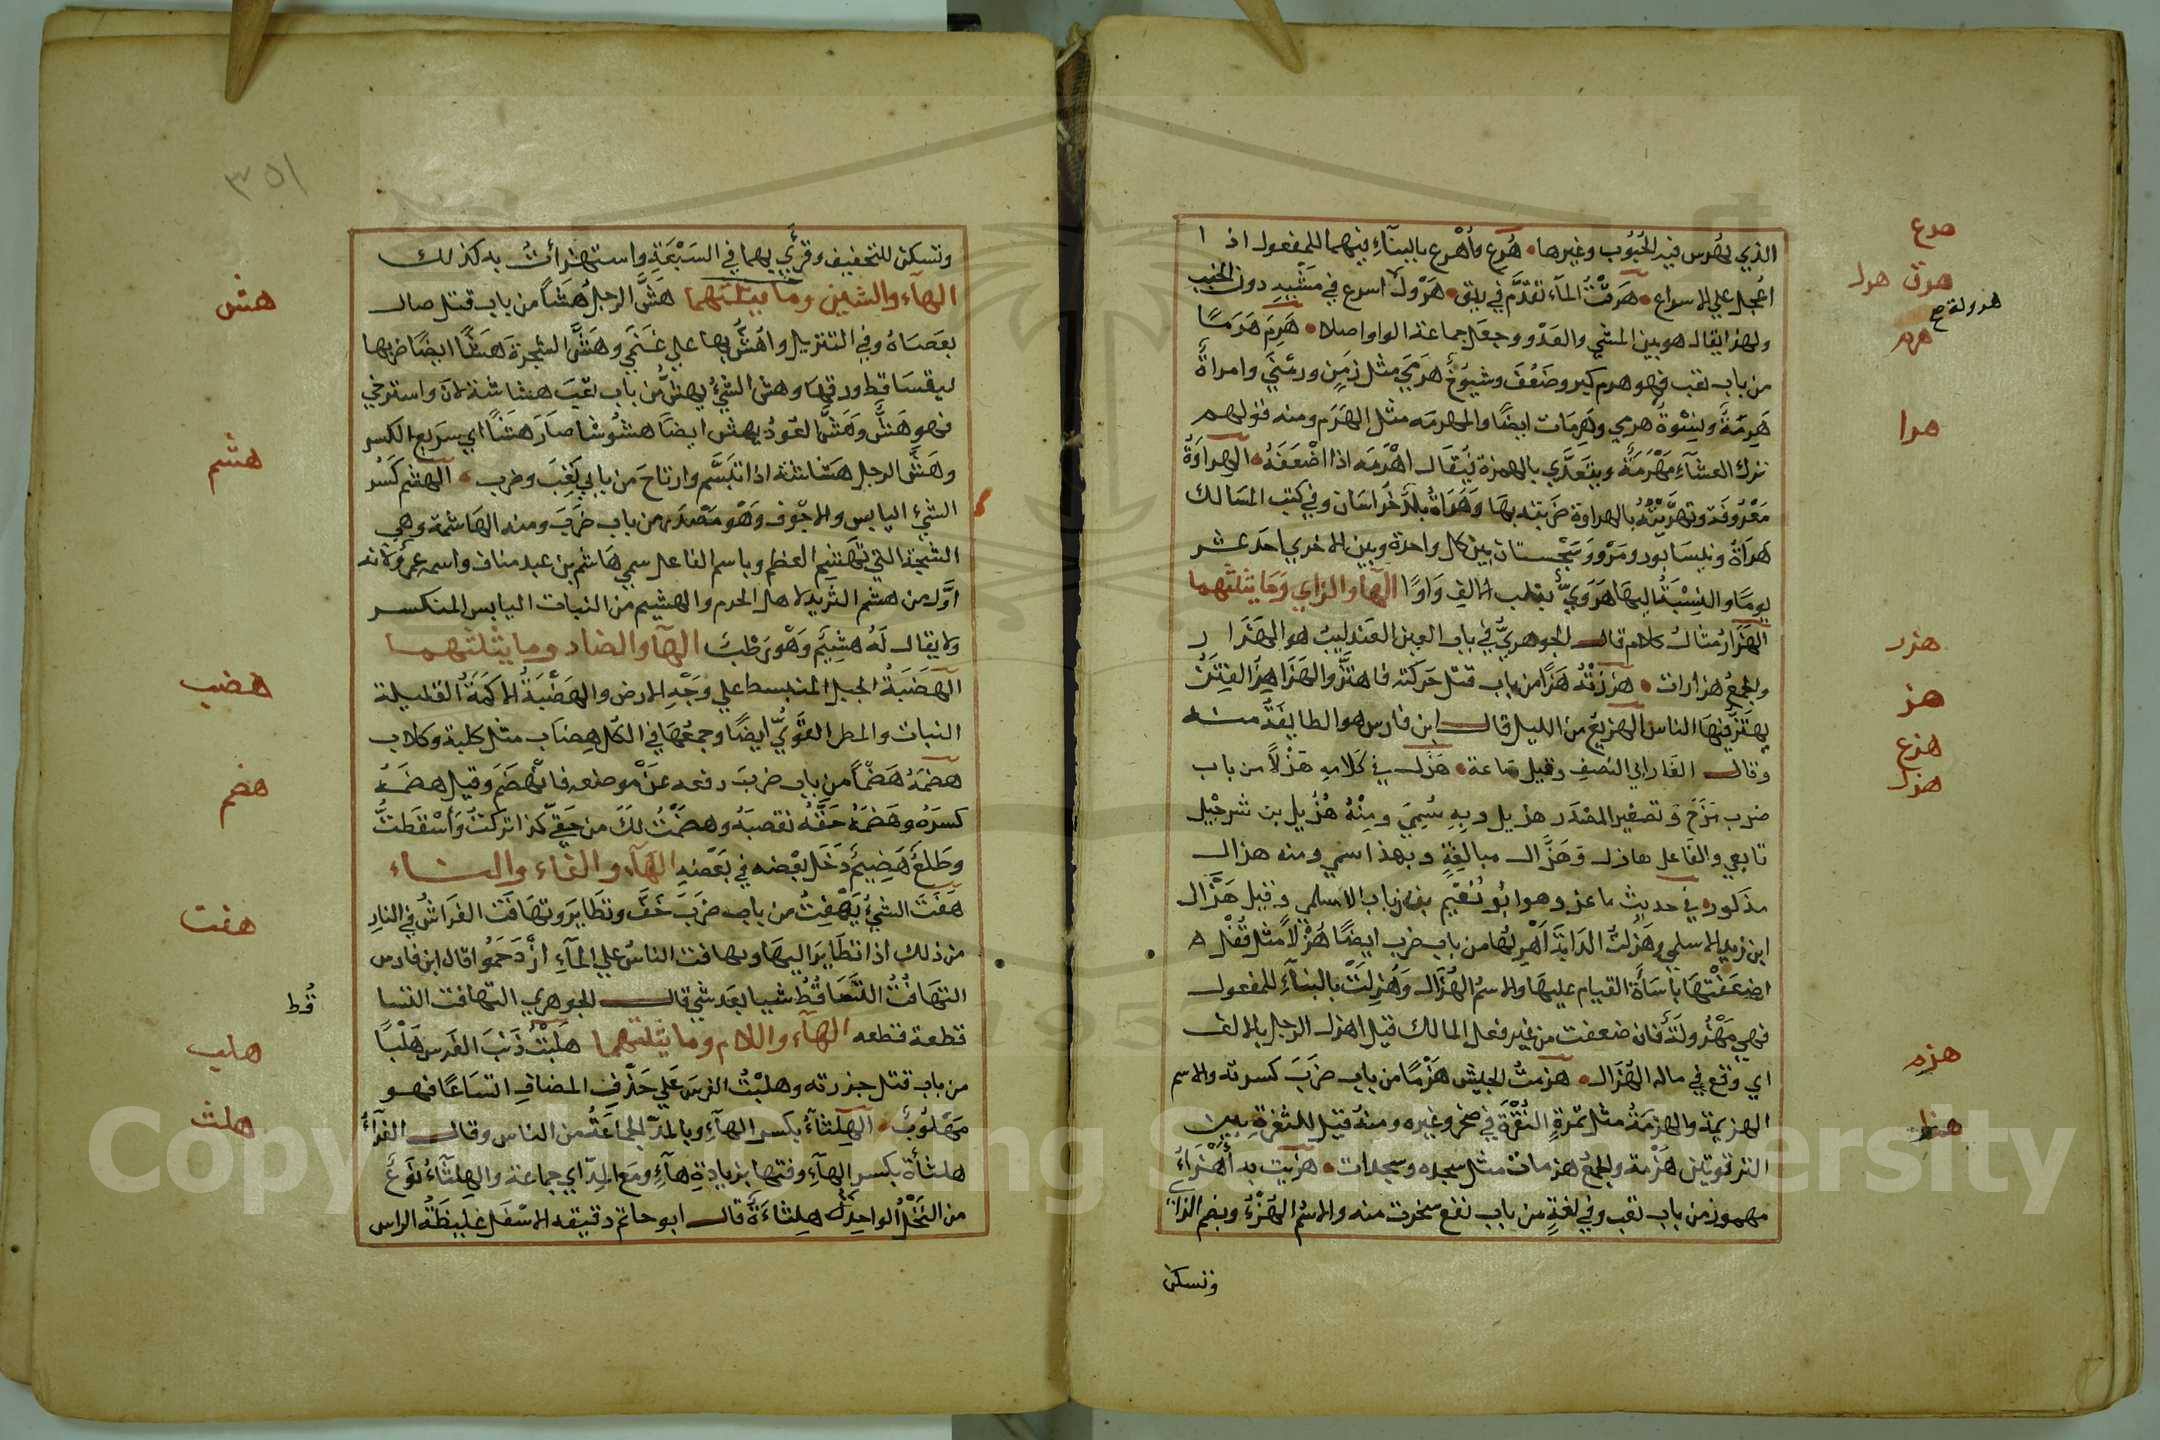 الذي يهرس فيه الحُبُوب وغيرها • هُرع وأُهْرع بالبنآءِ فيهما للمفعول اذ ا
اعجل علي الاسراع • هَرَقْتُ المآء تقدَّم في ريق • هَرْولَ اسرع في مَشْيه دون الخبب
ولهذا يقال هو بين المشي والعَدْو وجعَل جماعة الواو اصلا • هَرِمَ هَرَمًا
من باب تعب فهو هرم كبر وضَعُفَ وشيُوخٌ هَرْمَي مثل زَمِنٍ وزَمْنَي وامراةٌ
هَرِمَةٌ ونِسْوةٌ هرمي وهَرِمَات ايضًا والمهرمه مثل الهَرَم ومنه قولهم
ترك العشآءِ مَهْرَمَةٌ ويتعدَّي بالهمزة فيُقَال اهْرَمَه اذا اضْعَفَهُ • الهِراوَةُ
مَعْرُوفَة وتهرَّيْتُهُ بالهراوة ضَرَبْته بهَا وَهَرَاةُ بلَدُ خَرَاسَان وفي كتب المسَالك
هَرَاةُ ونيسَابُور ومَرْو وَسَجْستان بين كل واحدة وبين الاخري احَد عشر
يومًا والنِسْبَةُ اليهَا هَرَوِيٌّ بقلب الالفِ وَاوًا الهآ والزاي وَمَا يثلثهما
الهَزَارُ مثالُ كلام قال الجوهريُّ في باب العين العَندليبُ هو الهَزَا ر
والجمعُ هزارات • هَززْتُه هَزًّا من باب قتل حَرَكَته فاهتزَّ والهَزَاهِزُ الفِتَنُ
يهتَزُّ فيهَا الناس الهَزيعُ من الليل قال ابن فارس هو الطايفَةُ منه
وقال الفَارابي النصفِ وقيل ساعة • هَزَل في كَلامهِ هَزْلاً من باب
ضرب مَزَحَ وتصغير المصْدَر هزيل وبِهِ سُمِيَ ومِنْهُ هُزَيل بن شرحْبيل
تابعي والفَاعل هازل وَهَزَّال مبالغةٍ وبهذا سمي ومنه هزال
مذكور في حديث ماعز وهو ابُو نُعَيم بن ذباب الاسلمي وقيل هَزَّال
ابن زيد الاسلمي وهَزلتُ الدَابةَ اهْزلهَا من باب ضرب ايضًا هُزْلاً مثل قُفْل ه
اضعَفْتهَا باسَاءَة القيام عليهَا والاسمُ الهُزَّال وَهُزِلَتْ بالبنآءِ للمفعول
فهي مَهْزُولَة فَان ضعفت من غير فعل المالك قيل اهزل الرجل بالالف
اي وقع في ماله الهُزَال • هزمتُ الجيش هَزْمًا من باب ضَرَبَ كسرته والاسم
الهزيمة والهزمَةُ مثل تَمرةٍ النُقْرَة في صخر وغيره ومنهُ قيل للثغرة بين
الترقوتين هَزْمة والجمعُ هزمات مثل سجده وسجدات • هزئت به أهْزَاءُ
مهموز من باب تعب وفي لغةٍ من باب نفع سخرت منه والاسمُ الهُزْءُ وبضم الزاي
وتسكن
هرع
هرق هرل
هرولة صح
هرم
هرا
هزر
هز
هزع
هزل
هزم
هزا
٣٥١
وتسكن للتخفيف وقرئ بهما في السَبْعَةِ واستهزاتُ به كذلك
الهآء والشين وما يثلثهما هَشَّ الرجلُ هَشًّا من باب قتل صال
بعَصَاهُ وفي التنزيل واهُشُّ بها علي غنَمَي وهَشَّ الشجرَة هَشًّا ايضًا ضربها
ليَتسَاقط ورقهَا وهش الشيُ يهشُّ من باب تعِبَ هشاشة لان واسترخي
فهو هَشٌّ وَهَشَّ العُودُ يهش ايضًا هشُوشًا صَارَ هَشًّا اي سريع الكسر
وهَشَّ الرجل هشاشة اذا تبَسَّم وارتاح من بابي تَعِبَ وضرب • الهشم كَسْرُ
الشيُ اليابس والاجْوف وَهْو مَصْدَر من باب ضَرَبَ ومنه الهَاشمة وهي
الشجة التي تهَشم العظم وباسم الفاعل سمي هَاشم بن عبد مناف واسمه عمرٌو لانه
اوَّل من هشم الثريد لاهل الحرم والهشيم من النبات اليابس المنكسر
ولا يقال لَهُ هشِيمٌ وَهْو رَطْبٌ الهآ والضاد وما يثلثهما
الهَضَبَةُ الجبل المنبسط علي وجْهِ الارض والهَضْبَةُ الاكَمَةُ القليلة
النبات والمطر القوِيُّ ايضًا وجمعُهَا في الكل هِضَاب مثل كلبة وكلاب
هضَمَهُ هَضْمًا من باب ضربَ دفعه عَنْ موضعه فانْهَضَم وقيل هضَمَهُ
كسَرَهُ وهَضَمَهُ حَقَّهُ نقصَهُ وهضمْتُ لكَ من حَقِّي كذا تركتُ وَأسْقطتُ
وطَلعٌ هَضِيمٌ دَخَل بعْضه في بَعْضهِ الهآء والفاء والتاء
هَفَتَ الشيُ يَهْفِتُ من باب ضرَبَ خَفَّ وتطَايَر وتهَافَتَ الفَراشُ في النارِ
من ذلك اذا تطَايَر اليهَا وتهافت الناسُ علي المآءِ ازْدَحَمُوا قال ابن فارس
التهَافُتُ التَّسَاقُطُ شيًا بعَد شيٍ قال الجوهري التهافت التسا
قُط
قطعة قطعه الهآء واللام وما يثلثهما هَلَبْتُ ذَنَبَ الفَرس هَلْبًا
من باب قتل جززته وهلبْتُ الفرسَ عَلي حَذْفِ المضافِ اتسَاعًا فهو
مَهْلُوبٌ • الهَلِثآءُ بكسر الهآءِ وبالمدّ الجمَاعَةُ من الناس وقال الفرّآءُ
هلثأة بكسر الهآءِ وفتحها بزيادةِ هآءٍ ومَع المدِّ اي جماعة والهلثآءُ نَوعٌ
من النَخْل الواحِدة هلِثاءَةٌ قال ابو حاتم دقيقه الاسْفَل غليظَةُ الراس
هش
هشم
هضب
هضم
هفت
هلب
هلث